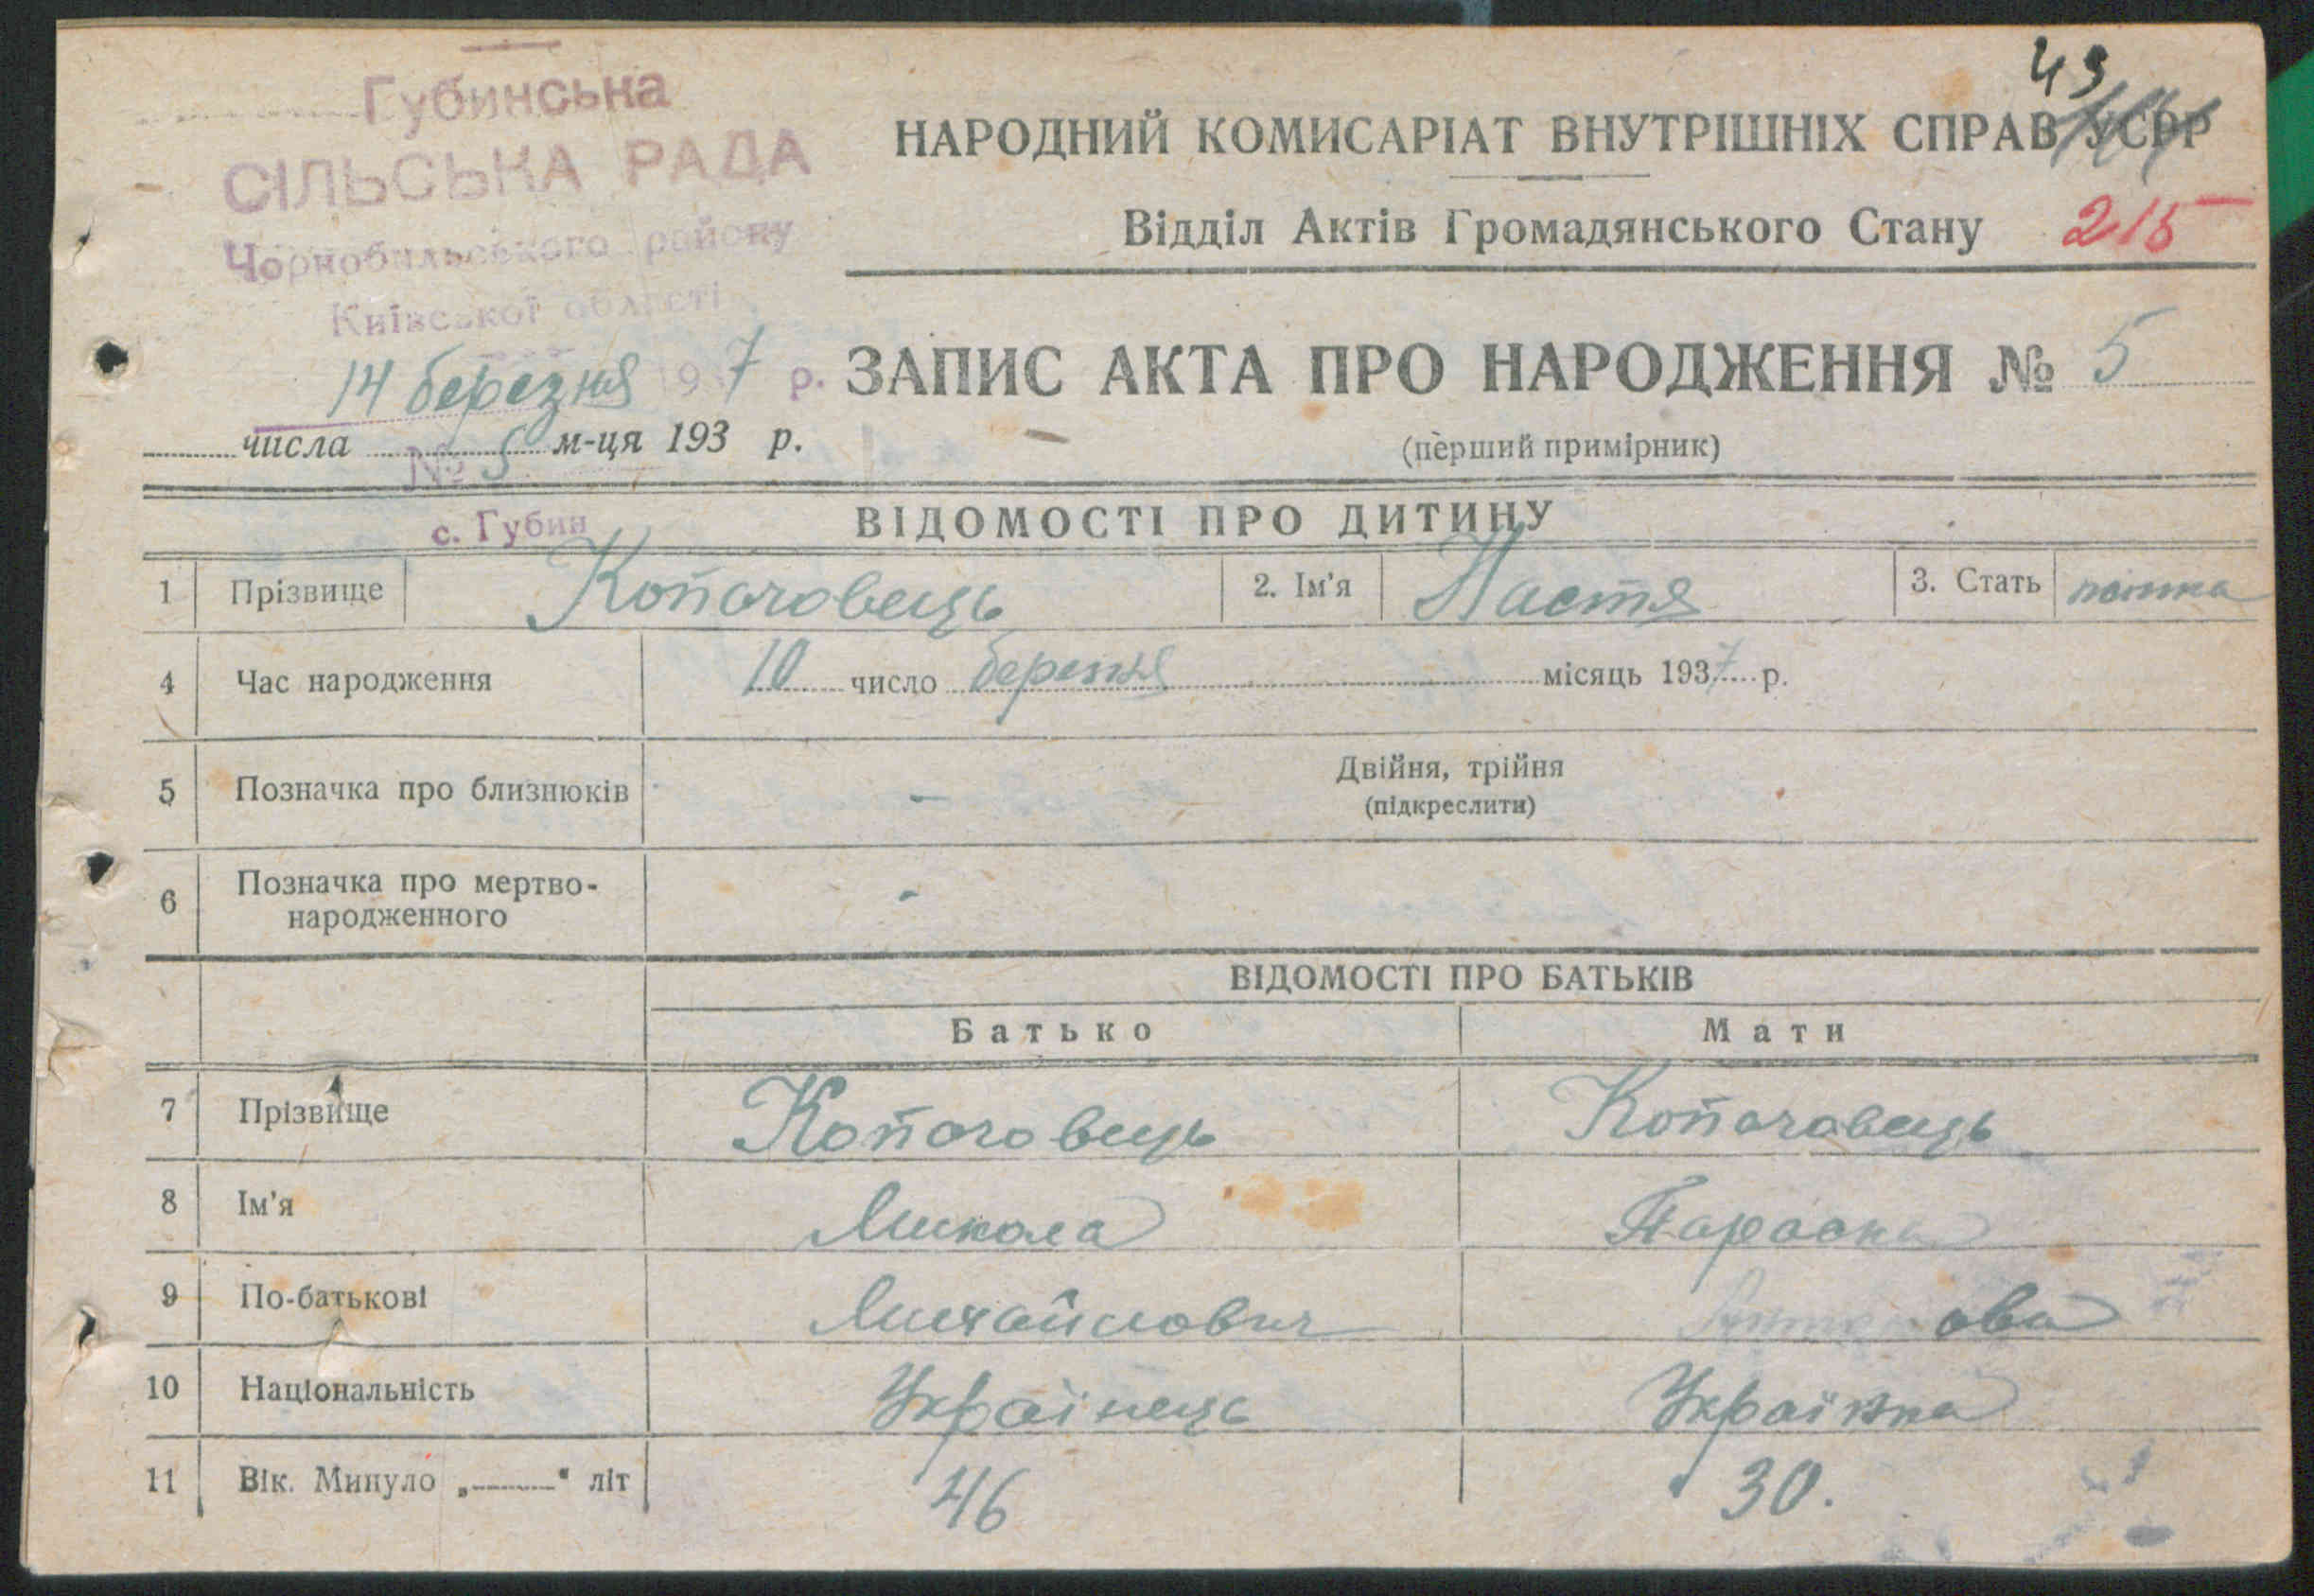 43
Губинська
СІЛЬСЬКА РАДА
Чорнобильського району
Київської області
14 березня 1937 р.
№ 5
с. Губин
НАРОДНИЙ КОМИСАРІАТ ВНУТРІШНІХ СПРАВ УСРР
Відділ Актів Громадянського Стану 215
ЗАПИС АКТА ПРО НАРОДЖЕННЯ № 5
числа м-ця 193 р.
(перший примірник)
ВІДОМОСТІ ПРО ДИТИНУ
1 Прізвище Копочовець 2. Ім'я Настя 3. Стать
4 Час народження 10 число березня місяць 1937 р.
5 Позначка про близнюків - Двійня, трійня
(підкреслити)
6 Позначка про мертво-
народженного -
ВІДОМОСТІ ПРО БАТЬКІВ
Батько Мати
7 Прізвище Копочовець Копочовець
8 Ім'я Микола Параска
9 По-батькові Михайлович
10 Національність Українець Українка
11 Вік. Минуло „ “ літ 46 30.